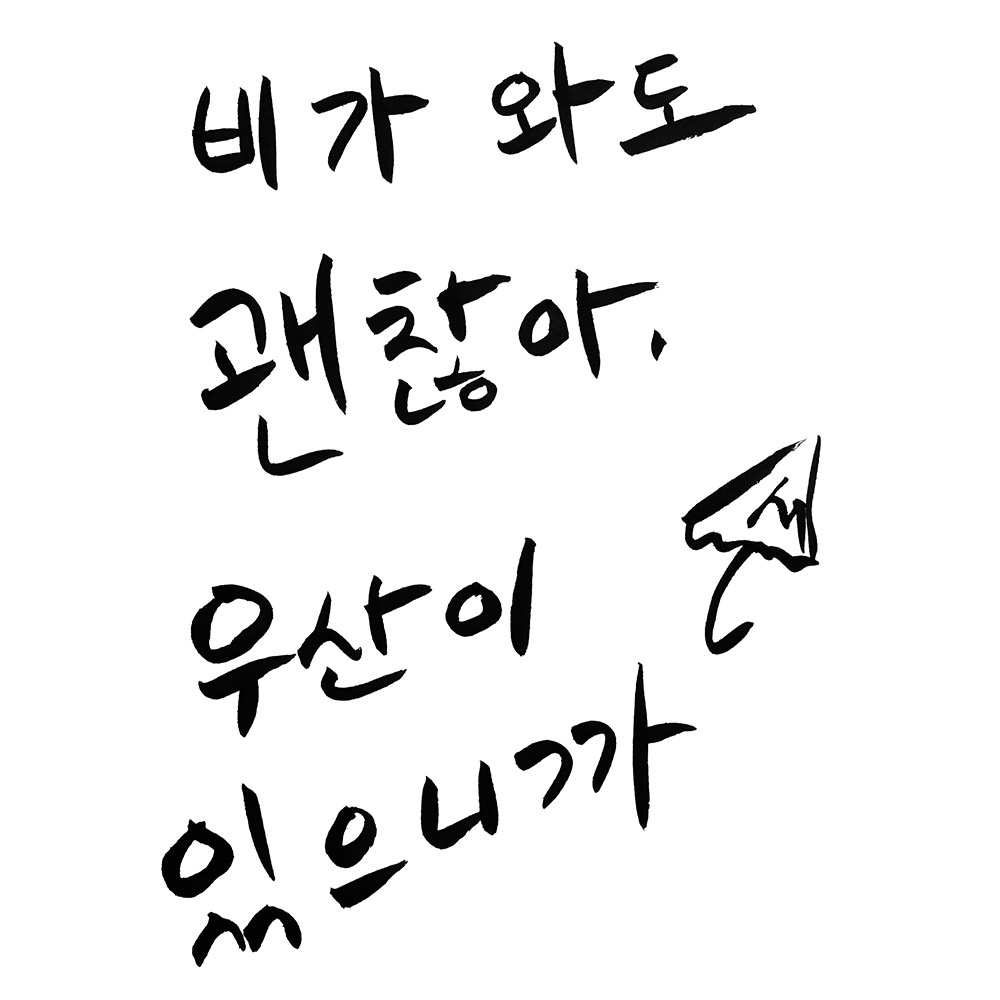 비가 와도
괜찮아.
우산이
있으니까